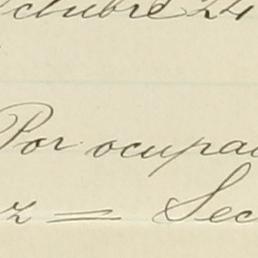 ctubre 24
Por ocupa
z = Sec